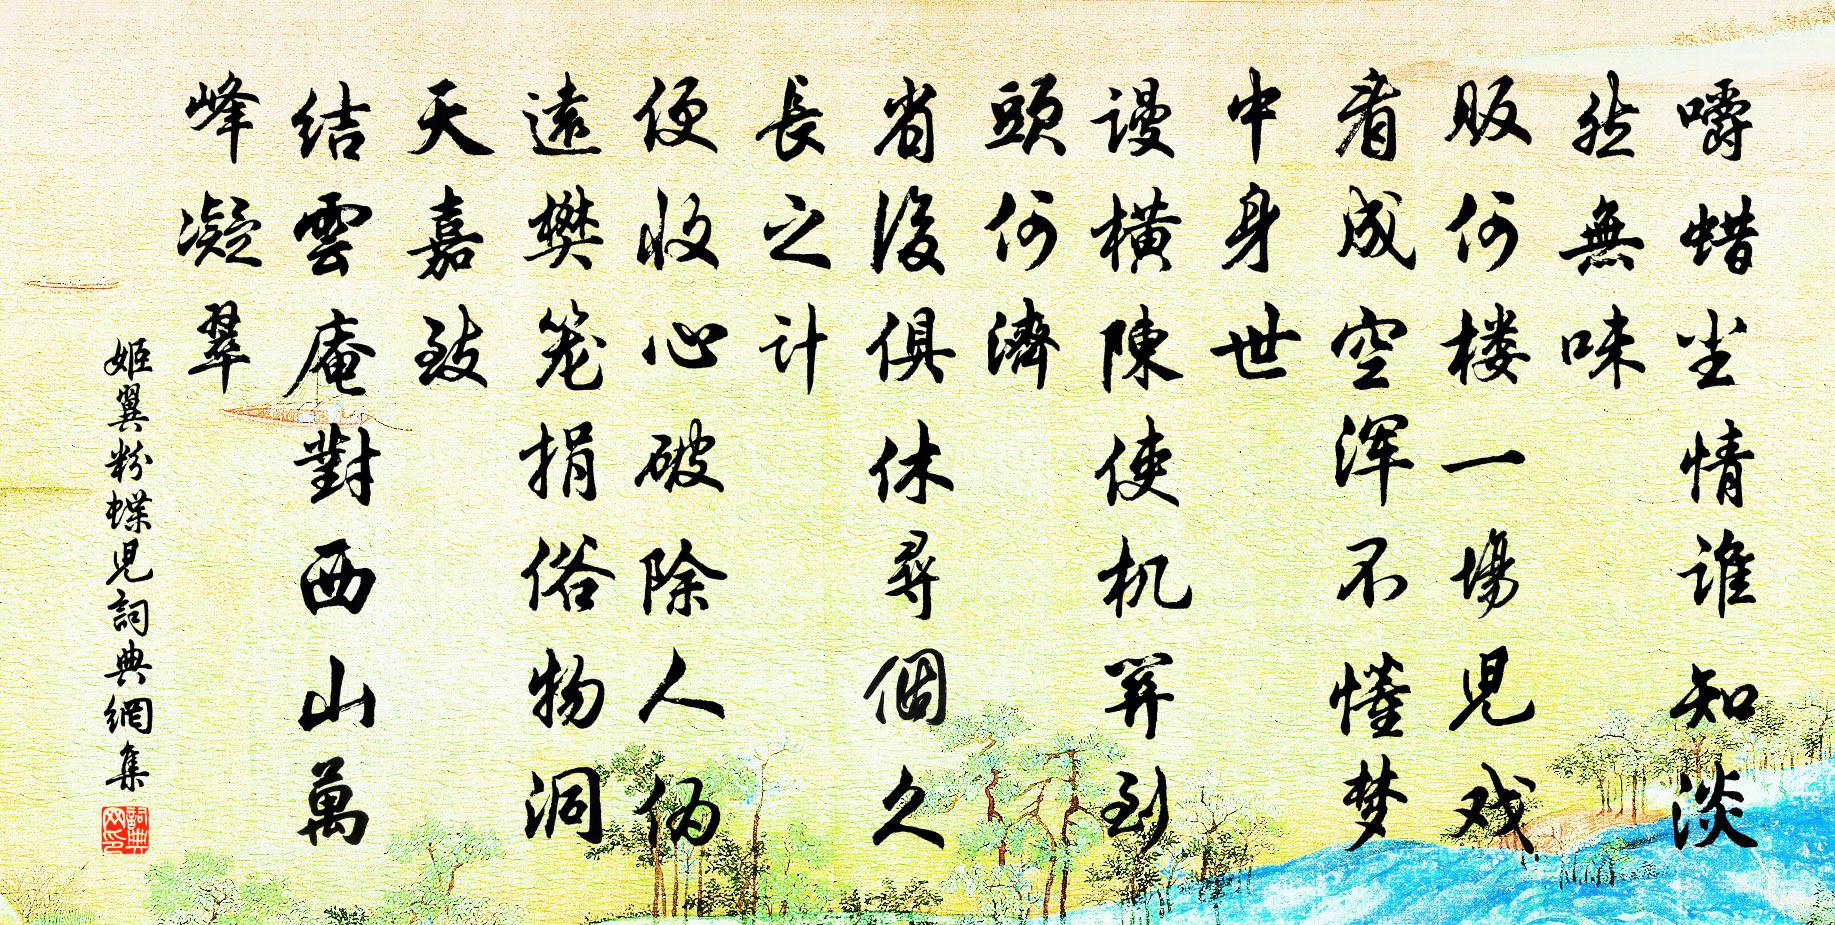 嚼蜡尘情谁知淡
然無味
贩何楼一場児戏
看成空浑不懂梦
中身世
谩横陳使机筭到
頭何濟
省後俱休尋個久
長之计
便收心破除人偽
遠樊笼捐俗物洞
天嘉致
結雲庵對西山萬
峰凝翠
姬翼粉蝶児詞典網集
詞典网印